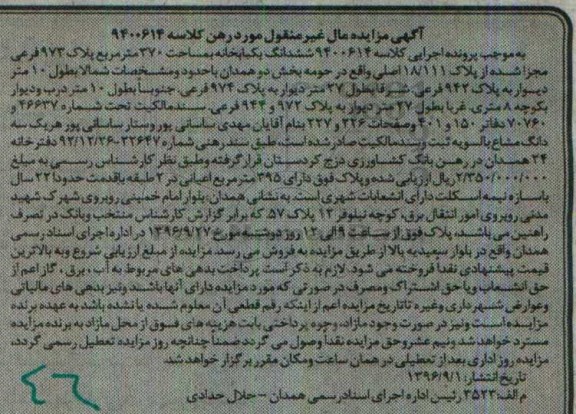 آگهی مزایده مال غیر منقول مورد رهن کلاسه ۹۴۰۰۶۱۴
به موجب پرونده اجرایی کلاسه ۹۴۰۰۶۱۴ ششدانگ یکبابخانه بمساحت ۳۷۰ مترمربع پلاک ۹۷۳ فرعی
مجزا شده از پلاک ۱۸/۱۱۱ اصلی واقع در حومه بخش دو همدان باحدود ومشخصات شمالا بطول ۱۰ متر
دیوار به پلاک ۹۴۲ فرعی شرقا بطول ۲۷ متر دیوار به پلاک ۹۷۴ فرعی جنوبا بطول ۱۰ متر درب ودیوار
بکوچه ۸ متری. غربا بطول ۲۷ متر دیوار به پلاک ۹۷۲ و ۹۴۴ فرعی سندمالکیت تحت شماره ۴۶۶۳۷ و
۷۰۷۶۰ دفاتر ۱۵۰ و ۴۰۱ وصفحات ۲۲۶ و ۲۲۷ بنام آقایان مهدی ساسانی پور وستار ساسانی پور هریک سه
دانگ مشاع بالسویه ثبت وسندمالکیت صادر شده است، طبق سند رهنی شماره ۲۲۶۴۷-۹۲/۱۲/۲۶ دفترخانه
۲۴ همدان در رهن بانک کشاورزی درج کردستان قرار گرفته وطبق نظر کارشناس رسمی به مبلغ
۲/۳۵۰/۰۰۰/۰۰۰ ریال ارزیابی شده وپلاک فوق دارای ۳۹۵ مترمربع اعیانی در ۲ طبقه باقدمت حدود ۲۲ سال
باسازه نیمه اسکلت دارای انشعابات شهری است، به نشانی همدان: بلوار امام خمینی روبروی شهرک شهید
مدنی روبروی امور انتقال برق، کوچه نیلوفر ۱۲ پلاک ۵۷ که برابر گزارش کارشناس منتخب وبانک در تصرف
راهنین می باشد، پلاک فوق از ساعت ۹ الی ۱۲ روز دوشنبه مورخ ۱۳۹۶/۹/۲۷ در اداره اجرای اسناد رسمی
همدان واقع در بلوار سعیدیه بالا از طریق مزایده به فروش می رسد. مزایده از مبلغ ارزیابی شروع وبه بالاترین
قیمت پیشنهادی نقدا فروخته می شود. لازم به ذکر است پرداخت بدهی های مربوط به آب، برق، گاز اعم از
حق انشعاب ویا حق اشتراک ومصرف در صورتی که مورد مزایده دارای آنها باشد ونیز بدهی های مالیاتی
وعوارض شهرداری وغیره تاتاریخ مزایده اعم از اینکه رقم قطعی آن معلوم شده یا نشده باشد به عهده برنده
مزایده است ونیز در صورت وجود مازاد، وجوه پرداختی بابت هزینه های فوق از محل مازاد به برنده مزایده
مسترد خواهد شد ونیم عشر وحق مزایده نقدا وصول می گردد ضمناً چنانچه روز مزایده تعطیل رسمی گردد،
مزایده روز اداری بعد از تعطیلی در همان ساعت ومکان مقرر برگزار خواهد شد.
تاریخ انتشار: ۱۳۹۶/۹/۱
م الف: ۳۵۲۳ رئیس اداره اجرای اسناد رسمی همدان - جلال حدادی